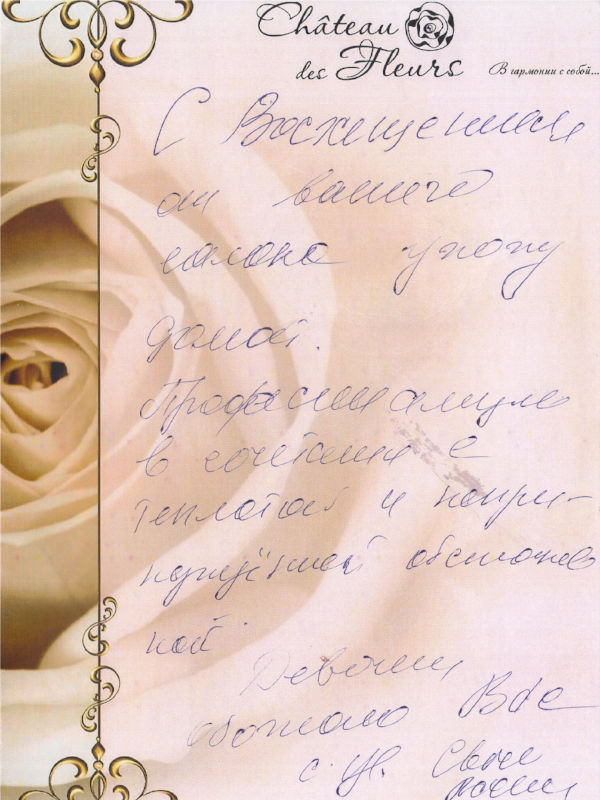 Château
des Fleurs
В гармонии с собой...
С Восхищением
от вашего
салона ухожу
домой.
Професионализм
в сочетании с
теплотой и непри-
нуждённой обстанов
кой.
Девочки
обожаю Вас
с ув.